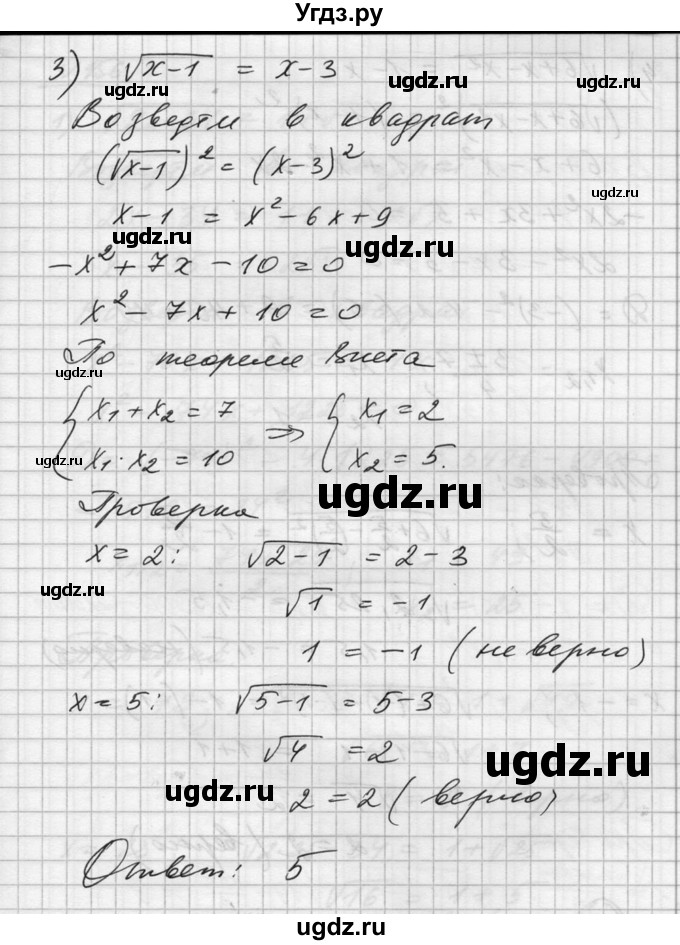 Угдз.ру
3) √(x-1) = x-3
ugdz.ru ugdz.ru
Возведем в квадрат
(√(x-1))² = (x-3)²
ugdz.ru
x-1 = x²-6x+9
ugdz.ru ugdz.ru
-x²+7x-10=0
x²-7x+10=0
По теореме Виета
ugdz.ru
{ x₁+x₂=7 ⇒ { x₁=2
{ x₁·x₂=10 { x₂=5.
ugdz.ru
ugdz.ru
Проверка
x=2: √(2-1) = 2-3
ugdz.ru ugdz.ru
√1 = -1
1 = -1 (не верно)
x=5: √(5-1) = 5-3
√4 = 2
ugdz.ru
ugdz.ru
2=2 (верно)
Ответ: 5
ugdz.ru